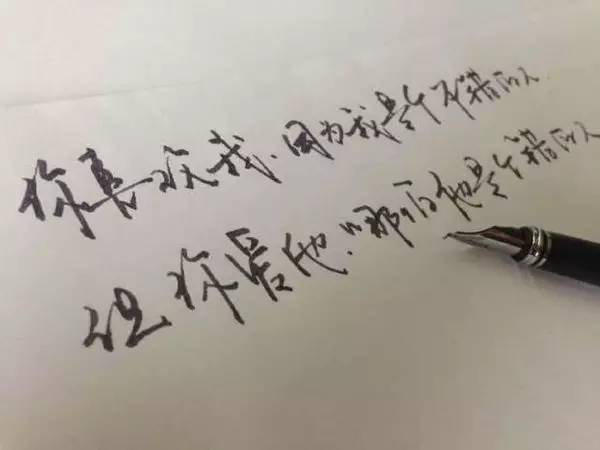 你喜欢我，因为我是个不错的人
但你爱他，哪怕他是个错的人